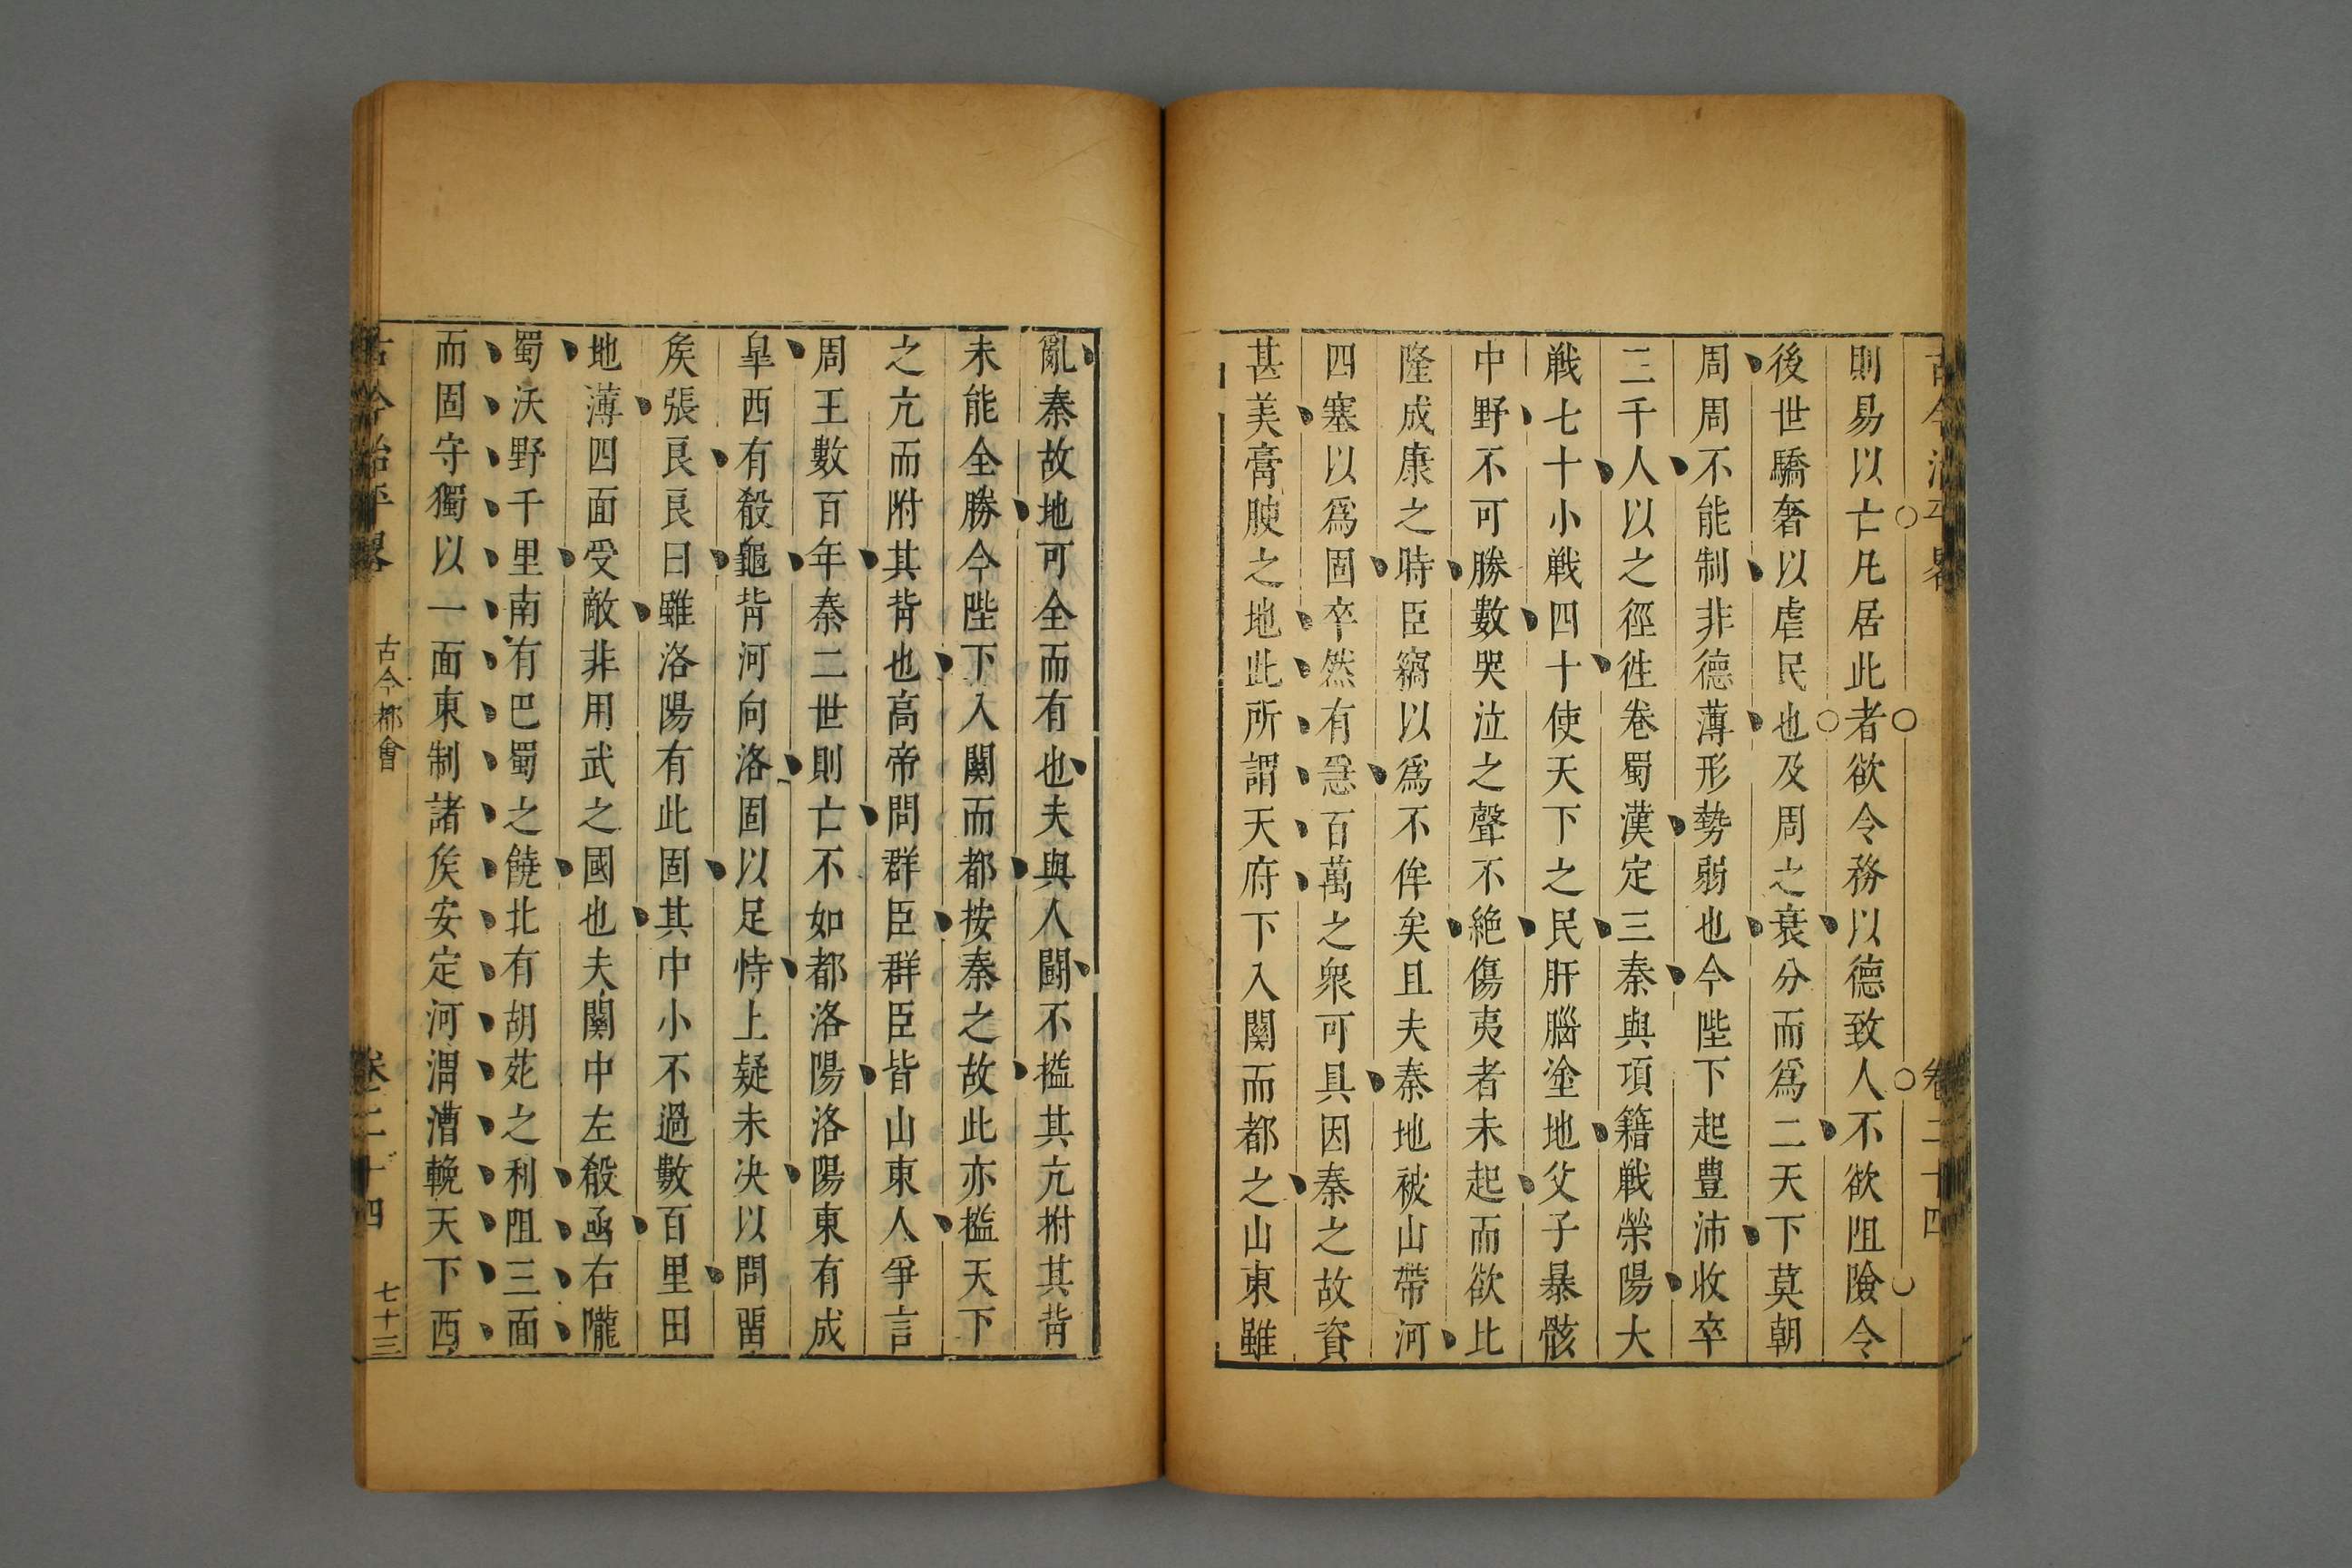 古今治平畧
卷二十四
則易以亡凡居此者欲令務以德致人不欲阻險令
後世驕奢以虐民也及周之衰分而為二天下莫朝
周周不能制非德薄形勢弱也今陛下起豊沛收卒
三千人以之徑徃卷蜀漢定三秦與項籍戦滎陽大
戦七十小戦四十使天下之民肝腦塗地父子暴骸
中野不可勝數哭泣之聲不絶傷夷者未起而欲比
隆成康之時臣竊以為不侔矣且夫秦地被山帶河
四塞以為固卒然有急百萬之衆可具因秦之故資
甚美膏腴之地此所謂天府下入關而都之山東雖
亂秦故地可全而有也夫與人鬪不搤其亢拊其背
未能全勝今陛下入關而都按秦之故此亦搤天下
之亢而附其背也高帝問群臣群臣皆山東人爭言
周王數百年秦二世則亡不如都洛陽洛陽東有成
皐西有殽黽背河向洛固以足恃上疑未决以問畱
矦張良良曰雖洛陽有此固其中小不過數百里田
地薄四面受敵非用武之國也夫關中左殽函右隴
蜀沃野千里南有巴蜀之饒北有胡苑之利阻三面
而固守獨以一面東制諸矦安定河渭漕輓天下西
古今治平畧
古今都會
卷二十四
七十三